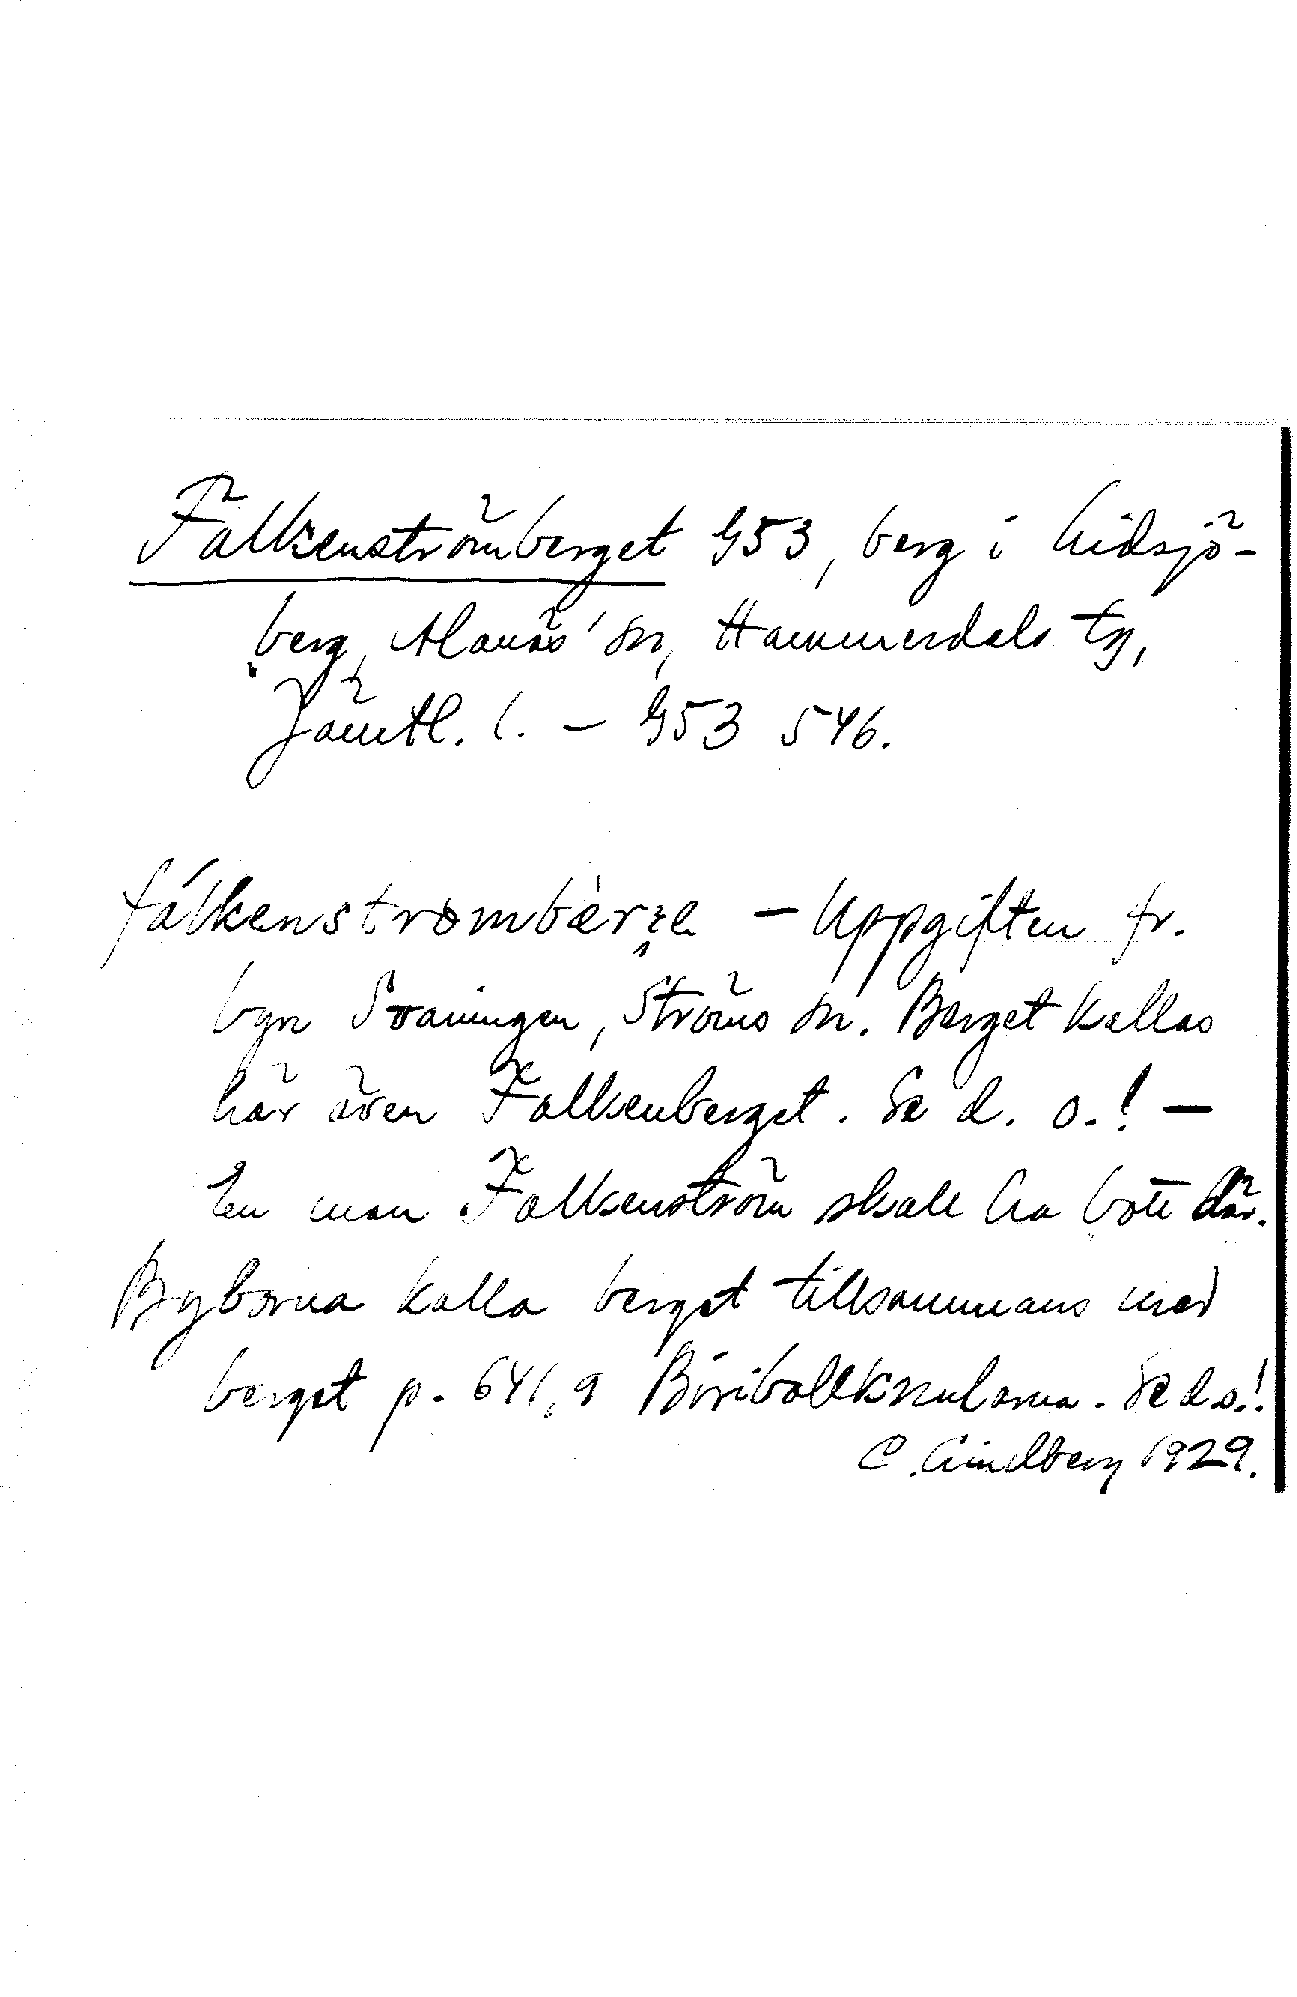 Falkenströmberget G53, berg i Lidsjö-
berg, Alanäs' sn, Hammerdals tg,
Jämtl. l. – G53 546.
fálkenstrømbèrɡe – Uppgiften fr.
byn Svaningen, Ströms sn. Berget kallas
här även Falkenberget. Se d. o.! –
En man Falkenström skall ha bott där.
Byborna kalla berget tillsammans med
berget p. 641,9 Se d.o.!
C. Lindberg 1929.